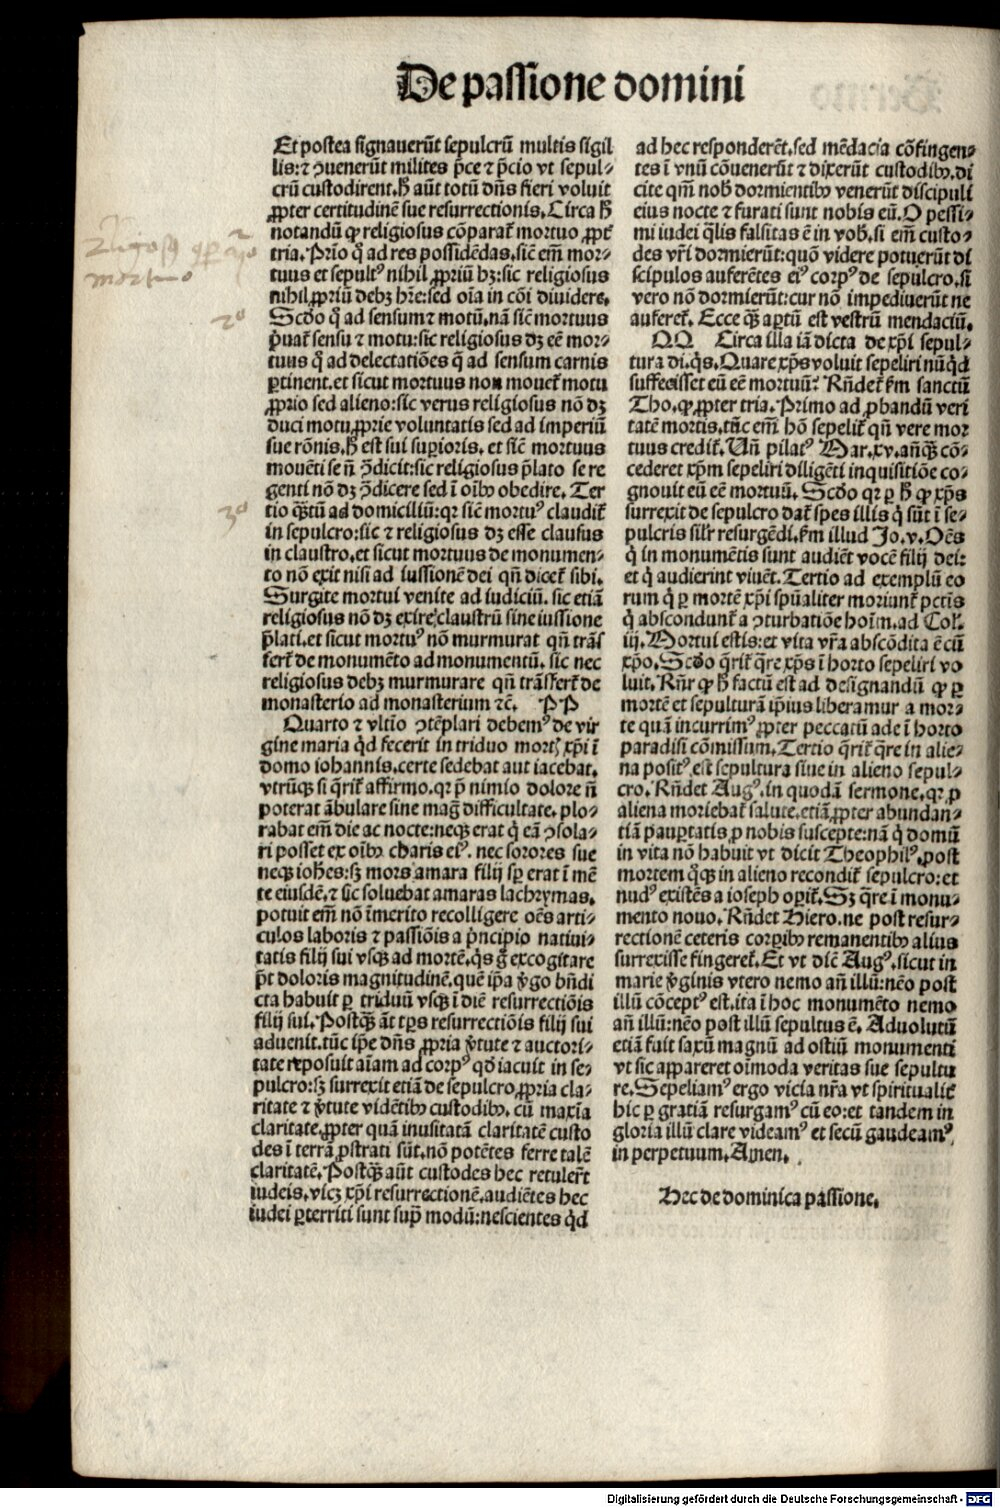 De passione domini
Et postea signauerūt sepulcrū multis sigil
lis: ⁊ ꝯuenerūt milites p̄ce ⁊ p̄cio vt sepul⸗
crū custodirent. h̄ aūt totū dn̄s fieri voluit
ꝓpter certitudinē sue resurrectionis. Circa h̄
notandū ꝙ religiosus cōparat᷑ mortuo ꝓpt᷑
tria. Prīo q̄ ad res possidēdas. sic̄ em̄ mor⸗
tuus et sepult᷒ nihil ꝓpriū hꝫ: sic religiosus
nihil ꝓpriū debꝫ hr̄e: sed oīa in cōi diuidere.
Scd̄o q̄ ad sensum ⁊ motū. nā sic̄ mortuus
p̄uat᷑ sensu ⁊ motu: sic religiosus dꝫ eē mor⸗
tuus q̄ ad delectatiōes q̄ ad sensum carnis
ꝑtinent. et sicut mortuus non mouet᷑ motu
ꝓprio sed alieno: sic verus religiosus nō dꝫ
duci motu ꝓprie voluntatis sed ad imperiū
sue rōnis. h̄ est sui suꝑioris. et sic̄ mortuus
mouēti se n̄ ꝯdicit: sic religiosus p̄lato se re
genti nō dꝫ ꝯdicere sed ī oībꝰ obedire. Ter
tio qȝtū ad domiciliū: qꝛ sic̄ mortu᷒ claudit᷑
in sepulcro: sic ⁊ religiosus dꝫ esse clausus
in claustro. et sicut mortuus de monumen⸗
to nō exit nisi ad iussionē dei qn̄ dicet᷑ sibi.
Surgite mortui venite ad iudiciū. sic etiā
religiosus nō dꝫ exire claustrū sine iussione
p̄lati. et sicut mortu᷒ nō murmurat qn̄ trāſ
fert᷑ de monumēto ad monumentū. sic nec
religiosus debꝫ murmurare qn̄ trāsfert᷑ de
monasterio ad monasterium ⁊c̄. PP
Quarto ⁊ vltīo ꝯtēplari debem᷒ de vir
gine maria qd̄ fecerit in triduo mortꝭ xp̄i ī
domo iohannis. certe sedebat aut iacebat.
vtrūqȝ si q̄rit᷑ affirmo. qꝛ p̄ nimio dolore n̄
poterat ābulare sine mag̅ difficultate. plo⸗
rabat em̄ die ac nocte: neqȝ erat q̇ eā ꝯsola⸗
ri posset ex oībꝰ charis ei᷒. nec sorores sue
neqȝ ioh̄es: sꝫ mors amara filij sꝑ erat ī mē
te eiusdē. ⁊ sic soluebat amaras lachrymas.
potuit em̄ nō īmerito recolligere oēs arti⸗
culos laboris ⁊ passiōis a p̄ncipio natiui⸗
tatis filij sui vsqȝ ad mortē. q̇s g̊ excogitare
p̄t doloris magnitudinē. quē ip̄a v̓go bn̄di
cta habuit ꝑ triduū vsqȝ ī diē resurrectiōis
filij sui. Postqȝ āt tp̄s resurrectiōis filij sui
aduenit. tūc ip̄e dn̄s ꝓpria v̓tute ⁊ auctori⸗
tate reposuit aīam ad corp᷒ qd̄ iacuit in se⸗
pulcro: sꝫ surrexit etiā de sepulcro ꝓpria cla⸗
ritate ⁊ v̓tute vidētibꝰ custodibꝰ. cū maxīa
claritate. ꝓpter quā inusitatā claritatē custo
des ī terrā ꝓstrati sūt. nō potētes ferre talē
claritatē. Postqȝ aūt custodes hec retuler̄t
iudeis. vicꝫ xp̄i resurrectionē. audiētes hec
iudei ꝑterriti sunt sup̄ modū: nescientes qd̄
ad hec responderēt. sed mēdacia cōfingen⸗
tes ī vnū cōuenerūt ⁊ dixerūt custodibꝰ. di
cite qm̄ nob̄ dormientibꝰ venerūt discipuli
eius nocte ⁊ furati sunt nobis eū. O pessi⸗
mi iudei q̄lis falsitas ē in vob̄. si em̄ custo⸗
des vr̄i dormierūt: quō videre potuerūt di
scipulos auferētes ei᷒ corp᷒ de sepulcro. si
vero nō dormierūt: cur nō impediuerūt ne
auferet᷑. Ecce qȝ aꝑtū est vestrū mendaciū.
QQ Circa illa iā dicta de xp̄i sepul⸗
tura di. q̇s. Quare xp̄s voluit sepeliri nūqd̄
suffecisset eū eē mortuū? Rn̄det᷑ ẜm sanctū
Tho. ꝙ ꝓpter tria. Primo ad ꝓbandū veri
tatē mortis. tūc em̄ hō sepelit᷑ qn̄ vere mor
tuus credit᷑. Un̄ pilat᷒ Mar. xv. anqȝ cō⸗
cederet xp̄m sepeliri diligēti inquisitiōe co⸗
gnouit eū eē mortuū. Scd̄o qꝛ ꝑ h̄ ꝙ xp̄s
surrexit de sepulcro dat᷑ spes illis q̇ sūt ī se⸗
pulcris silr̄ resurgēdi. ẜm illud Jo. v. Oēs
q̇ in monumētis sunt audiēt vocē filij dei:
et q̇ audierint viuēt. Tertio ad exemplū eo
rum q̇ ꝑ mortē xp̄i spūaliter moriunt᷑ pctīs
q̇ abscondunt᷑ a ꝯturbatiōe hoīm. ad Col̄.
iij. Mortui estis: et vita vr̄a abscōdita ē cū
xp̄o. Scd̄o q̄rit᷑ q̄re xp̄s ī horto sepeliri vo
luit. Rn̄r ꝙ h̄ factū est ad designandū ꝙ ꝑ
mortē et sepulturā ip̄ius liberamur a mor⸗
te quā incurrim᷒ ꝓpter peccatū ade ī horto
paradisi cōmissum. Tertio q̄rit᷑ q̄re in alie⸗
na posit᷒ est sepultura siue in alieno sepul⸗
cro. Rn̄det Aug᷒. in quodā sermone. qꝛ ꝓ
aliena moriebat᷑ salute. etiā ꝓpter abundan⸗
tiā pauꝑtatis ꝓ nobis suscepte: nā q̇ domū
in vita nō habuit vt dicit Theophil᷒. post
mortem qȝ in alieno recondit᷑ sepulcro: et
nud᷒ existēs a ioseph oꝑit᷑. Sꝫ q̄re ī monu⸗
mento nouo. Rn̄det Hiero. ne post resur⸗
rectionē ceteris corꝑibꝰ remanentibꝰ alius
surrexisse fingeret᷑. Et vt dic̄ Aug᷒. sicut in
marie v̓ginis vtero nemo an̄ illū: nēo post
illū cōcept᷒ est. ita ī hoc monumēto nemo
an̄ illū: nēo post illū sepultus ē. Aduolutū
etiā fuit saxū magnū ad ostiū monumenti
vt sic appareret oīmoda veritas sue sepultu
re. Sepeliam᷒ ergo vicia nr̄a vt spiritualit᷑
hic ꝑ gratiā resurgam᷒ cū eo: et tandem in
gloria illū clare videam᷒ et secū gaudeam᷒
in perpetuum. Amen.
Hec de dominica passione.
mortuo
2º
3º
Digitalisierung gefördert durch die Deutsche Forschungsgemeinschaft - DFG